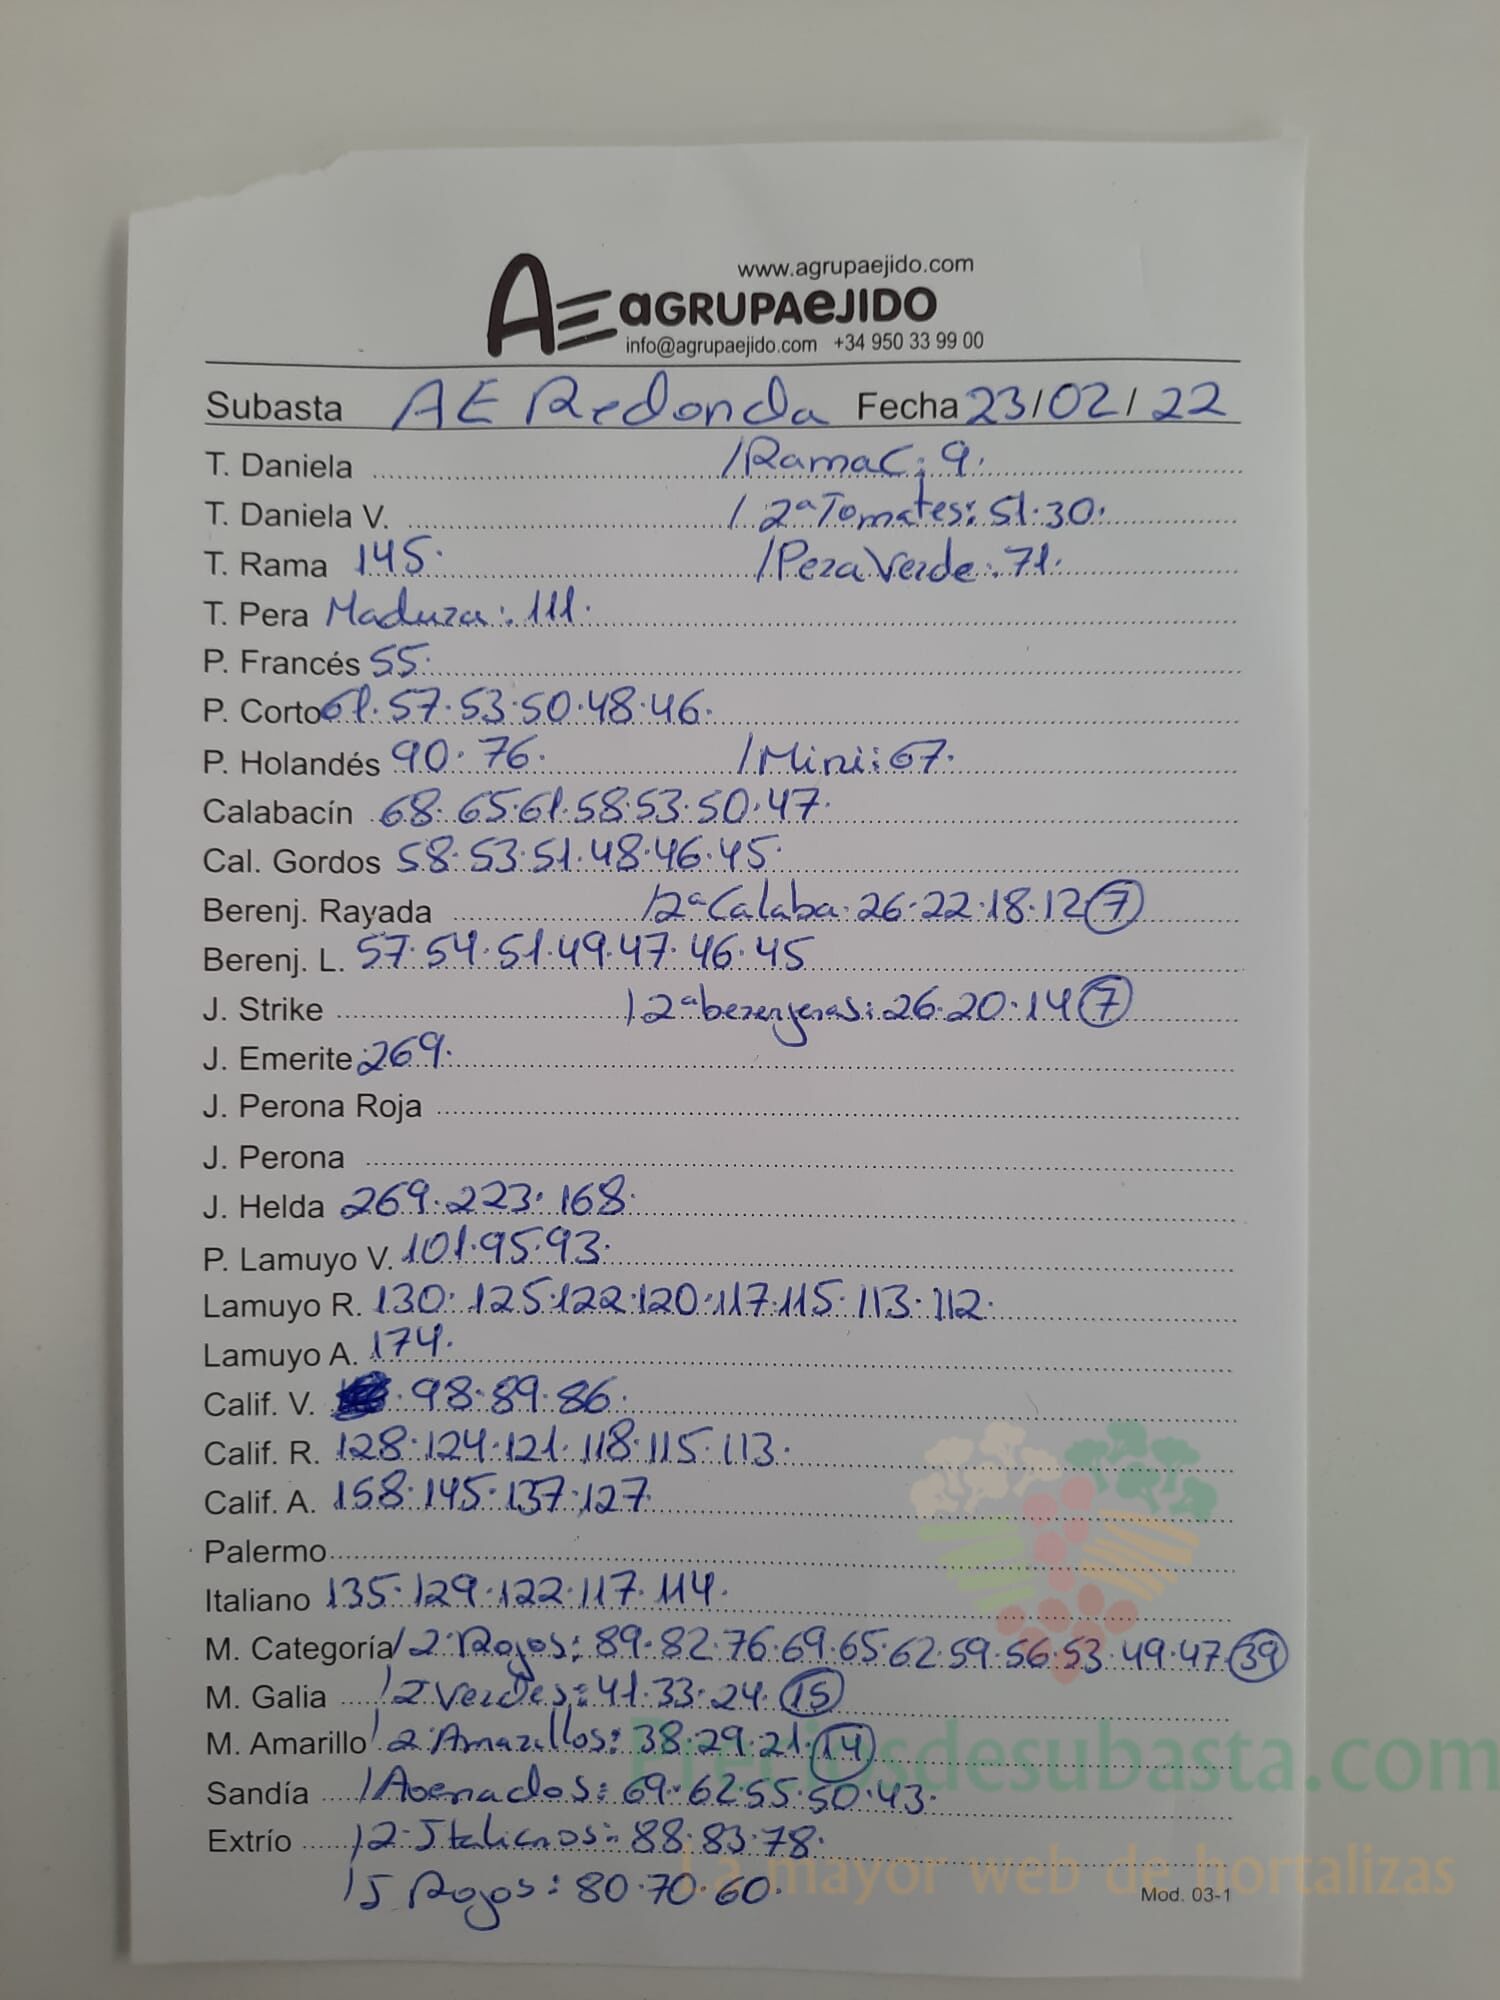 www.agrupaejido.com
AE aGRUPAeJIDO
info@agrupaejido.com +34 950 33 99 00
Subasta AE Redonda Fecha 23/02/22
T. Daniela /Rama C: 9.
T. Daniela V. / 2ª Tomates: 51.30.
T. Rama 145. /Pera Verde: 71.
T. Pera Madura: 111.
P. Francés 55.
P. Corto 61.57.53.50.48.46.
P. Holandés 90.76. /Mini: 67.
Calabacín 68.65.61.58.53.50.47.
Cal. Gordos 58.53.51.48.46.45.
Berenj. Rayada /2ª Calaba. 26.22.18.12 (7)
Berenj. L. 57.54.51.49.47.46.45
J. Strike /2ª berenjenas: 26.20.14 (7)
J. Emerite 269.
J. Perona Roja
J. Perona
J. Helda 269.223.168.
P. Lamuyo V. 101.95.93.
Lamuyo R. 130.125.122.120.117.115.113.112.
Lamuyo A. 174.
Calif. V. .98.89.86.
Calif. R. 128.124.121.118.115.113.
Calif. A. 158.145.137.127
Palermo
Italiano 135.129.122.117.114.
M. Categoría /2ª Rojos: 89.82.76.69.65.62.59.56.53.49.47.(39)
M. Galia /2 Verdes: 41.33.24.(15)
M. Amarillo /2ª Amarillos: 38.29.21.(14)
Sandía /Asenados: 69.62.55.50.43.
Extrío /2 Italianos: 88.83.78.
/J Rojos: 80.70.60.
Mod. 03-1
Preciosdesubasta.com
La mayor web de hortalizas